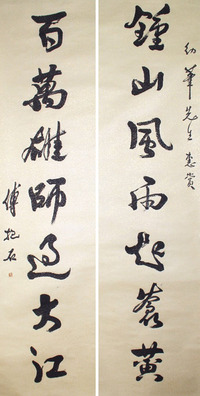 幼華先生惠賞
鍾山風雨起蒼黃
百萬雄師過大江
傅抱石